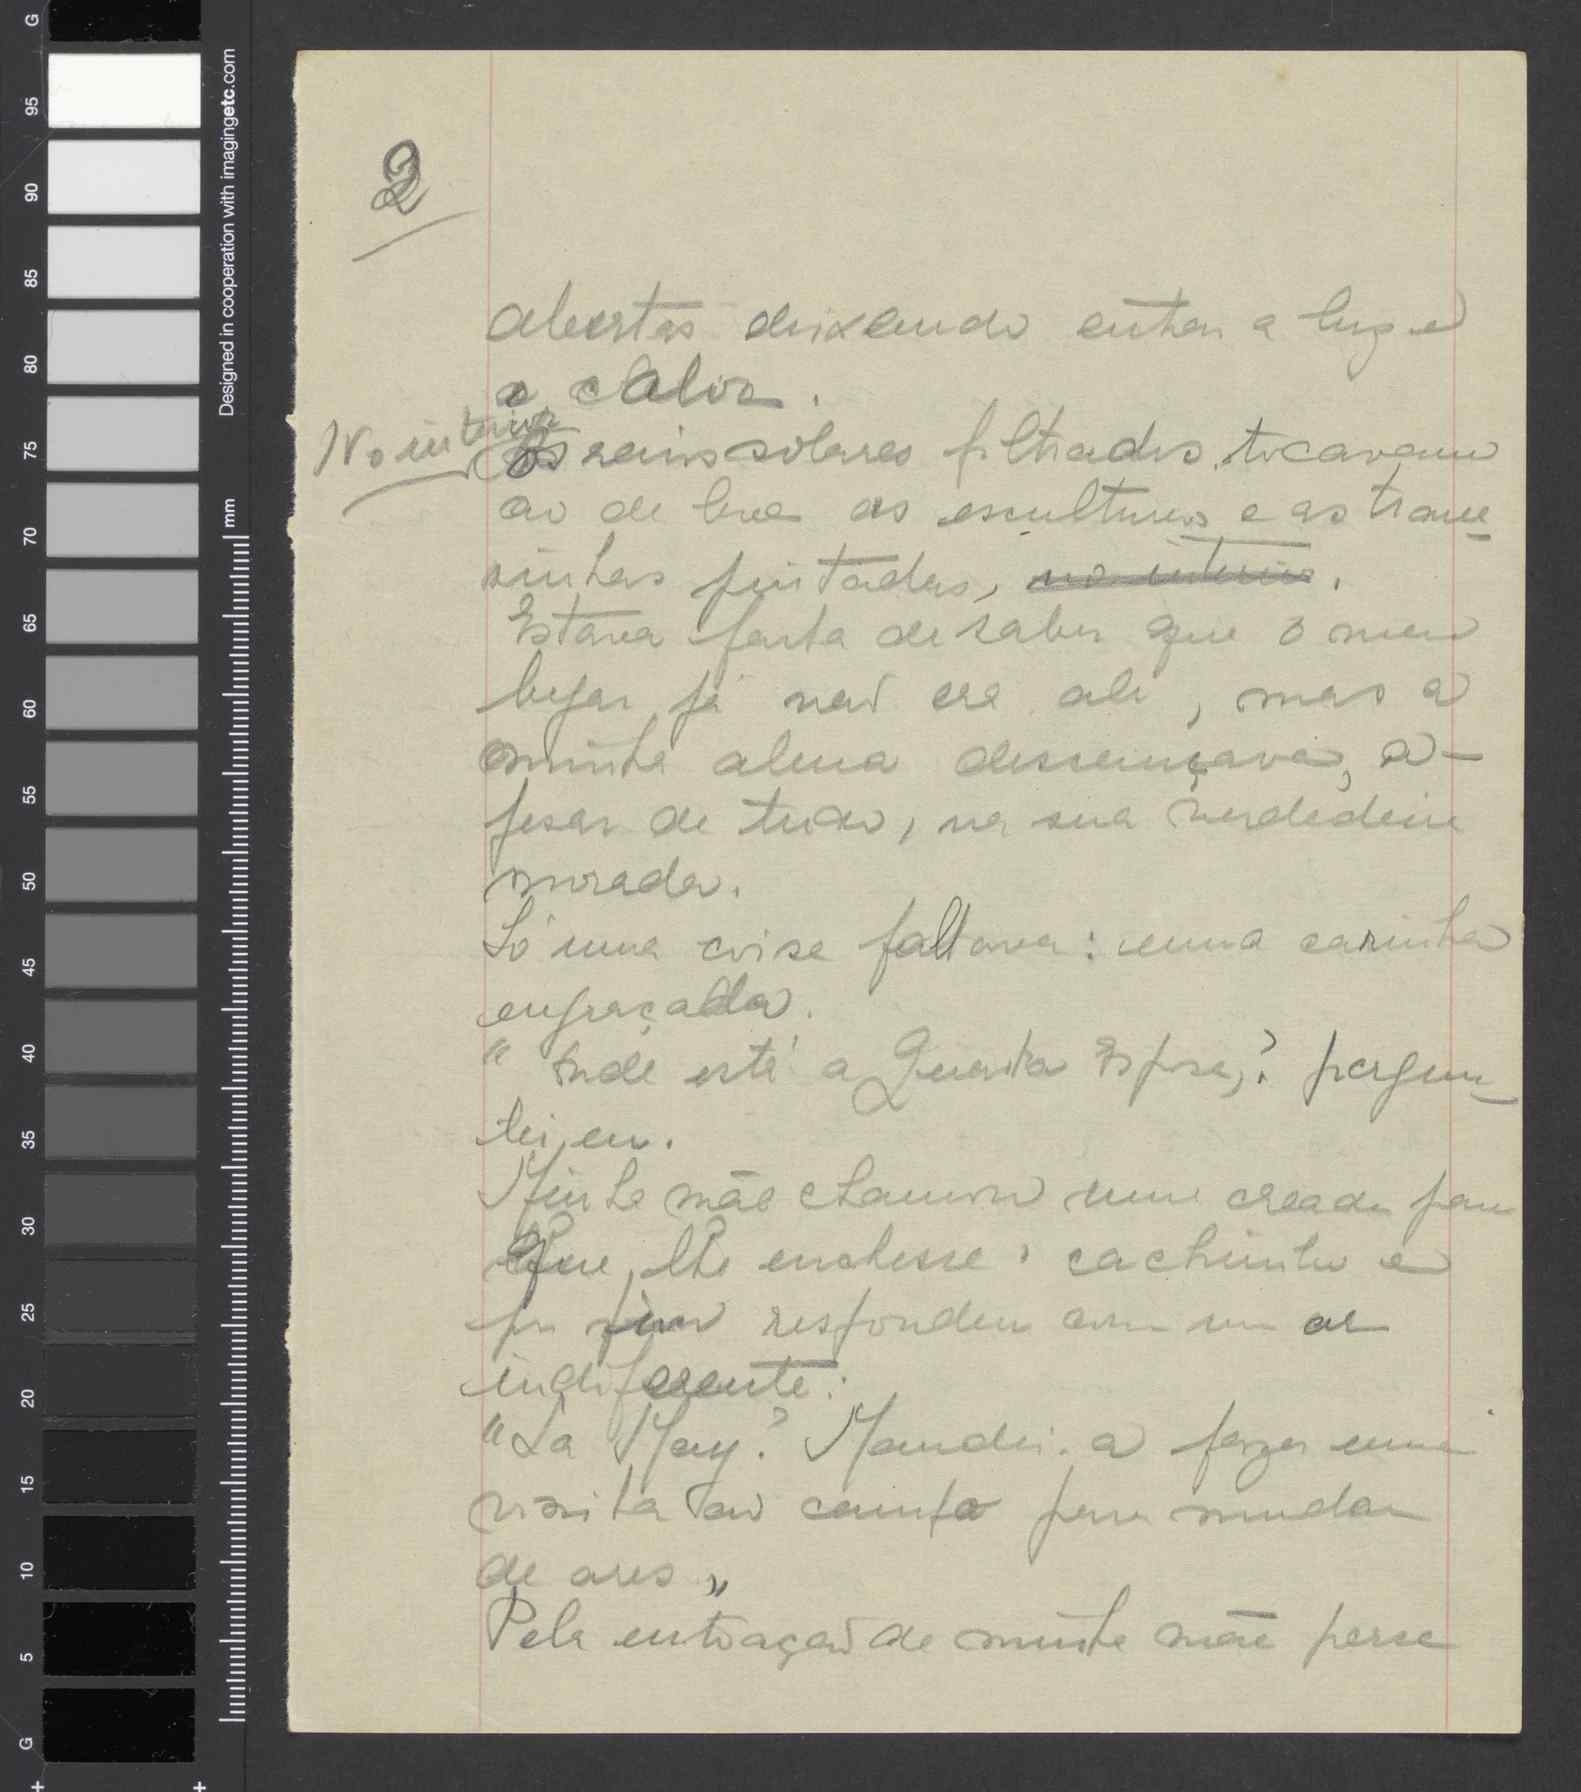 2
abertas deixando entrar a luz e
o calor.
No interior os raios solares filtrados tocavam
ao de leve as esculturas e as trave
sinhas pintadas, no interior.
Estava farta de saber que o meu
lugar já não era ali, mas a
minha alma descançava, a-
pesar de tudo, na sua verdadeira
morada.
Só uma coisa faltava: uma carinha
engraçada.
" Onde está a Quarta Esposa? pergun_
tei eu.
Minha mãe chamou uma creada para
que lhe enchesse o cachimbo e
por fim respondeu com um ar
indiferente:
"La May? Mandei-a fazer uma
visita ao campo para mudar
de ares"
Pela entoação de minha mãe perce
Designed in cooperation with imagingetc.com
mm
G
95
90
85
80
75
70
65
60
55
50
45
40
35
30
25
20
15
10
5
G